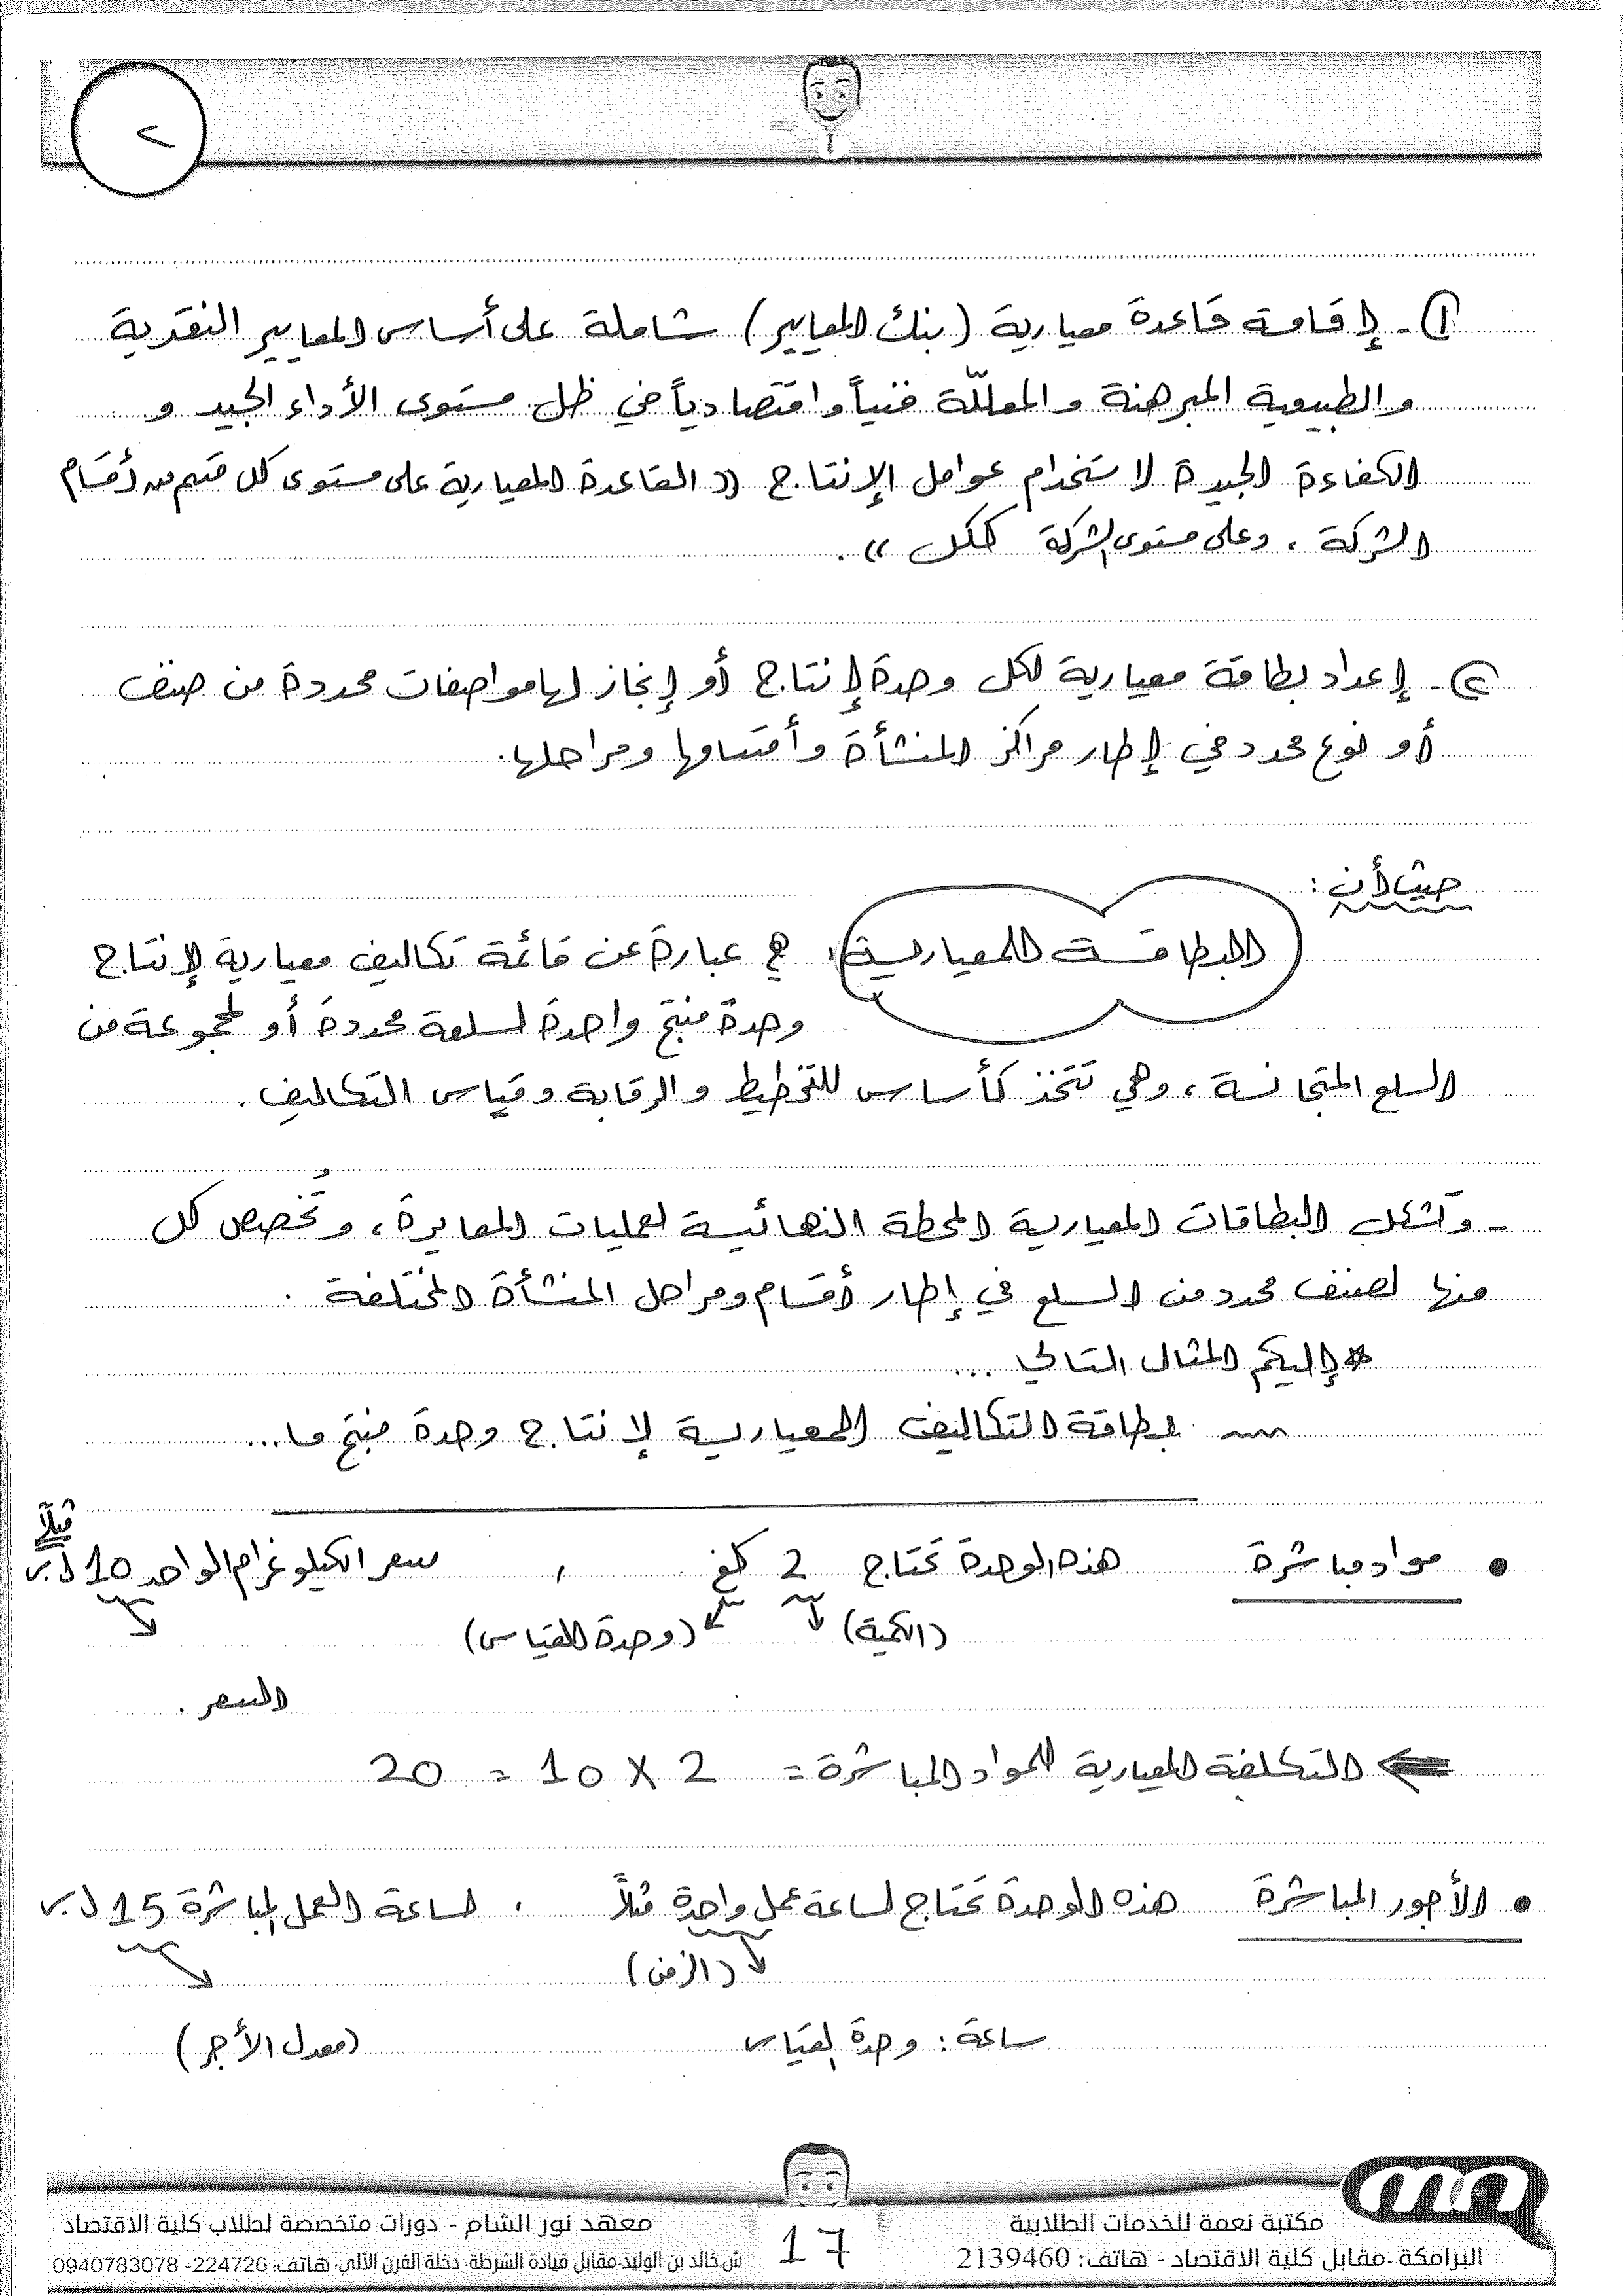 ٢
①- إقامة قاعدة معيارية (بنك المعايير) شاملة على أساس المعايير النقدية
والطبيعية المبرهنة والمعللّة فنياً واقتصادياً في ظل مستوى الأداء الجيد و
الكفاءة الجيدة لاستخدام عوامل الإنتاج (( القاعدة المعيارية على مستوى كل قسم من أقسام
الشركة ، وعلى مستوى الشركة ككل )) .
②- إعداد بطاقة معيارية لكل وحدة إنتاج أو إنجاز لها مواصفات محددة من صنف
أو نوع محدد في إطار مراكز المنشأة وأقسامها ومراحلها.
حيث أن :
البطاقة المعيارية : هي عبارة عن قائمة تكاليف معيارية لإنتاج
وحدة منتج واحدة لسلعة محددة أو لمجموعة من
السلع المتجانسة ، وهي تتخذ كأساس للتخطيط والرقابة وقياس التكاليف .
- وتشكل البطاقات المعيارية المحطة النهائية لعمليات المعايرة ، وتُخصص كل
منها لصنف محدد من السلع في إطار أقسام ومراحل المنشأة المختلفة .
* إليكم المثال التالي ...
بطاقة التكاليف المعيارية لإنتاج وحدة منتج ما ...
• مواد مباشرة هذه الوحدة تحتاج 2 كغ ، سعر الكيلو غرام الواحد 10 ل.س مثلاً
(الكمية) (وحدة القياس)
السعر .
⇐ التكلفة المعيارية للمواد المباشرة = 2 × 10 = 20
• الأجور المباشرة هذه الوحدة تحتاج لساعة عمل واحدة مثلاً ، لساعة العمل المباشرة 15 ل.س
(الزمن)
ساعة : وحدة القياس (معدل الأجر)
mn
مكتبة نعمة للخدمات الطلابية
البرامكة -مقابل كلية الاقتصاد - هاتف: 2139460
17
معهد نور الشام - دورات متخصصة لطلاب كلية الاقتصاد
ش.خالد بن الوليد-مقابل قيادة الشرطة- دخلة الفرن الآلي- هاتف: 224726- 0940783078